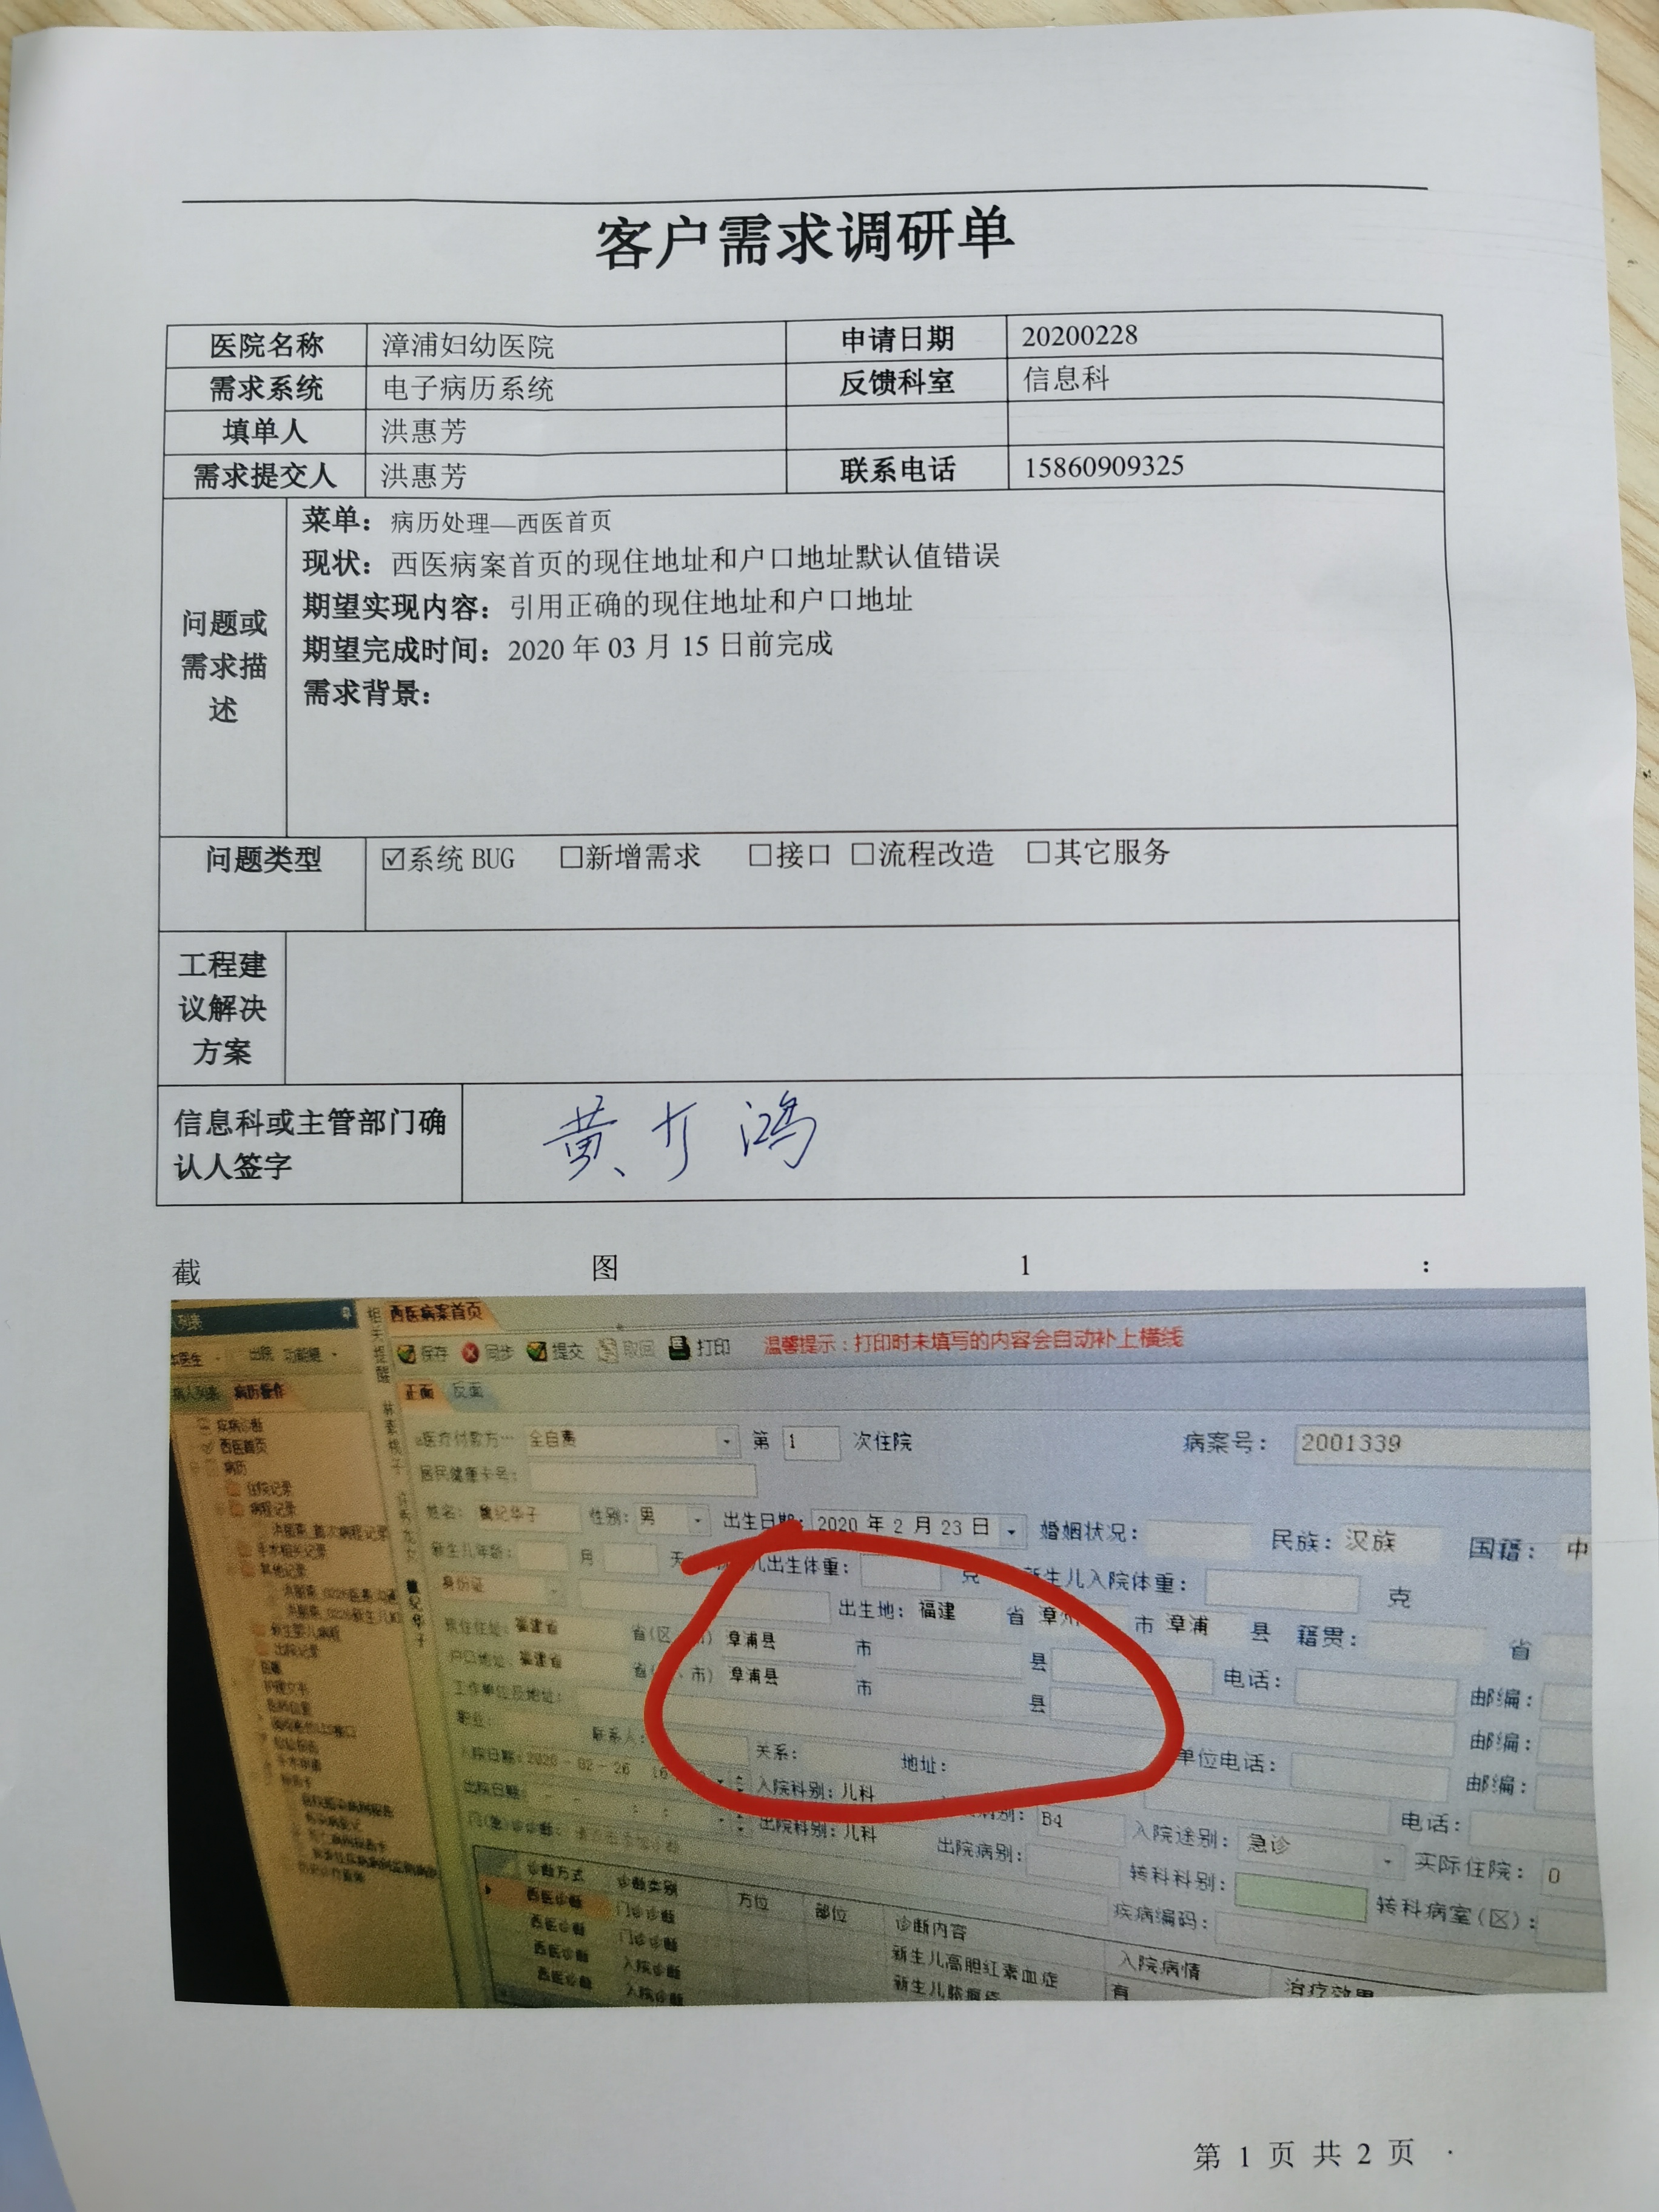 客户需求调研单
医院名称 漳浦妇幼医院 申请日期 20200228
需求系统 电子病历系统 反馈科室 信息科
填单人 洪惠芳
需求提交人 洪惠芳 联系电话 15860909325
问题或需求描述
菜单：病历处理—西医首页
现状：西医病案首页的现住地址和户口地址默认值错误
期望实现内容：引用正确的现住地址和户口地址
期望完成时间：2020 年 03 月 15 日前完成
需求背景：
问题类型 ☑系统 BUG □新增需求 □接口 □流程改造 □其它服务
工程建议解决方案
信息科或主管部门确认人签字 黄 鸿
截 图 1 ：
西医病案首页
保存 同步 提交 取回 打印 温馨提示：打印时未填写的内容会自动补上横线
出院 功能键
病人列表 病历操作
正面 反面
疾病诊断
西医首页
病历
住院记录
病程记录
首次病程记录
手术相关记录
其他记录
出院记录
医疗付款方… 全自费 第 1 次住院 病案号： 2001339
居民健康卡号：
姓名： 纪华子 性别： 男 出生日期： 2020 年 2 月 23 日 婚姻状况： 民族： 汉族 国籍： 中
新生儿年龄： 月 天 儿出生体重： 克 新生儿入院体重： 克
身份证 出生地： 福建 省 漳州 市 漳浦 县 籍贯： 省
现住地址： 福建省 省(区、市) 漳浦县 市 县 电话： 邮编：
户口地址： 福建省 省(区、市) 漳浦县 市 县 邮编：
工作单位及地址： 单位电话： 邮编：
职业： 联系人： 关系： 地址： 电话：
入院日期： 2020-02-26 16 入院科别： 儿科 B4 入院途别： 急诊 实际住院： 0
出院日期： 出院科别： 儿科 出院病别： 转科科别： 转科病室(区)：
门(急)诊诊断： 疾病编码：
诊断方式 诊断类别 方位 部位 诊断内容 入院病情 治疗效果
西医诊断 门诊诊断 新生儿高胆红素血症 有
西医诊断 门诊诊断 新生儿脓疱疮
西医诊断 入院诊断
西医诊断 入院诊断
第 1 页 共 2 页